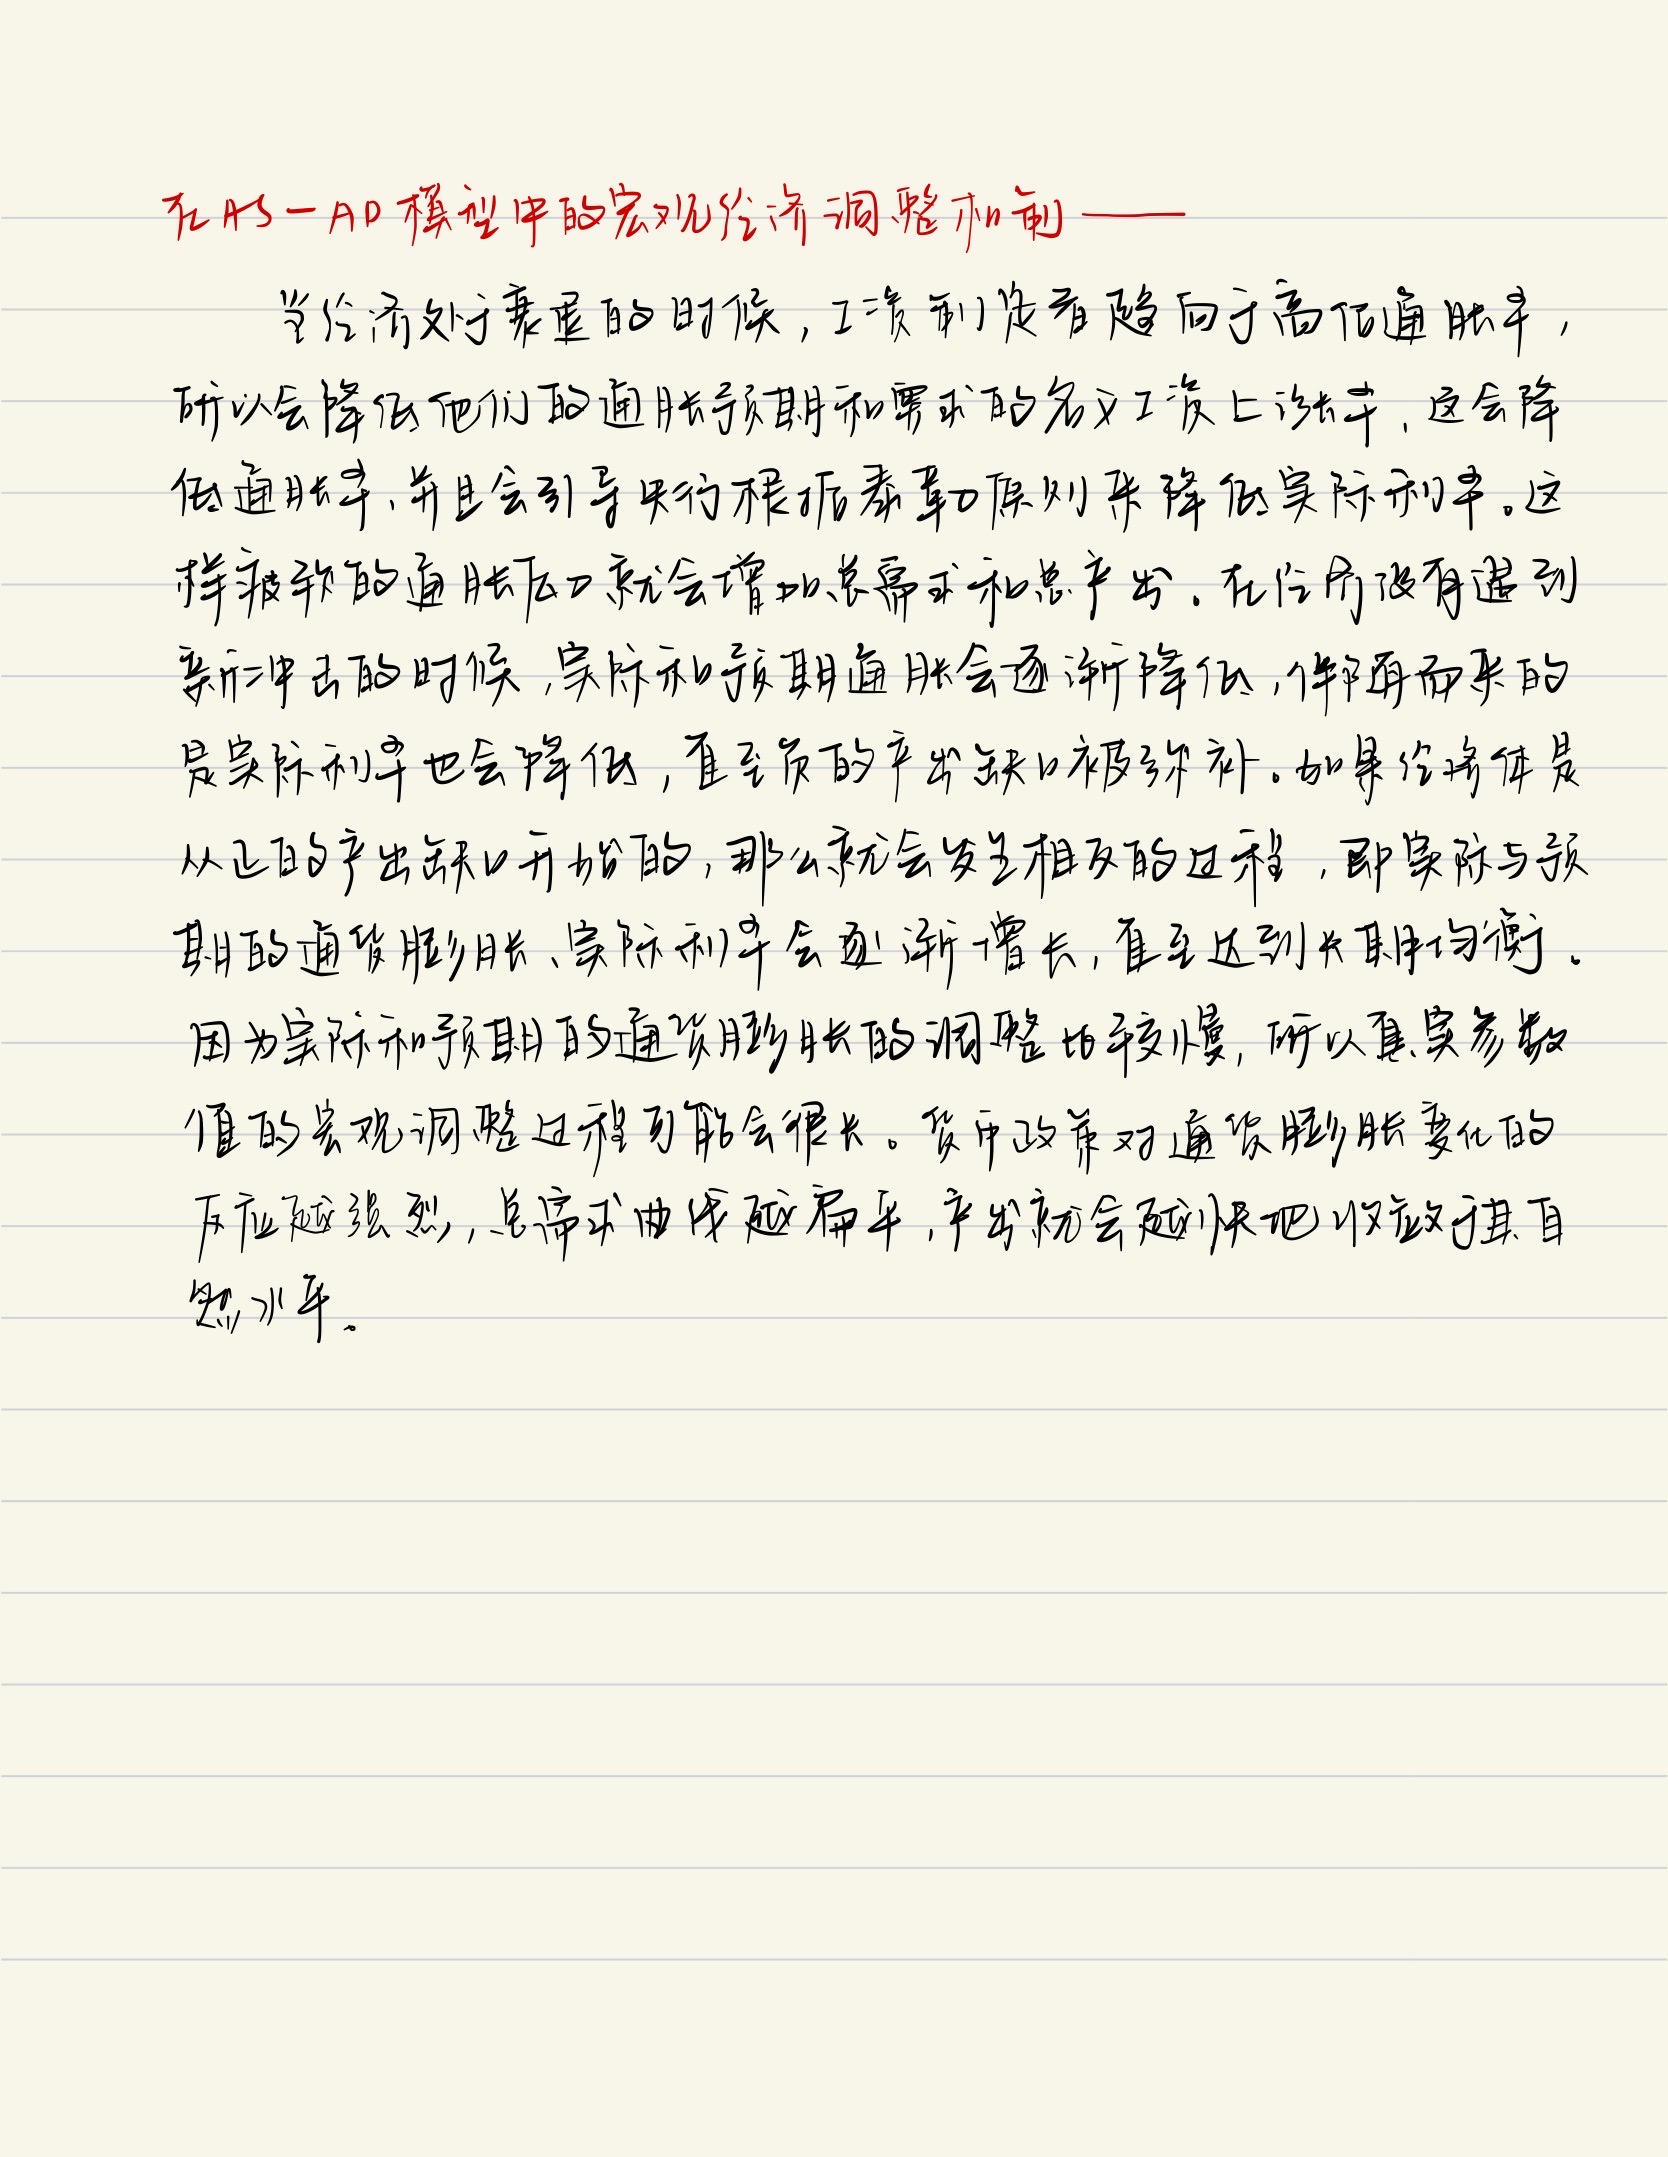 在AS-AD模型中的宏观经济调整机制——
当经济处于衰退的时候，工资制定者趋向于高估通胀率，
所以会降低他们的通胀预期和要求的名义工资上涨率，这会降
低通胀率，并且会引导央行根据泰勒原则来降低实际利率。这
样疲软的通胀压力就会增加总需求和总产出。在经济没有遇到
新冲击的时候，实际和预期通胀会逐渐降低，伴随而来的
是实际利率也会降低，直至负的产出缺口被弥补。如果经济体是
从正的产出缺口开始的，那么就会发生相反的过程，即实际与预
期的通货膨胀、实际利率会逐渐增长，直至达到长期均衡。
因为实际和预期的通货膨胀的调整比较慢，所以真实参数
值的宏观调整过程可能会很长。货币政策对通货膨胀变化的
反应越强烈，总需求曲线越扁平，产出就会越快地收敛于其自
然水平。